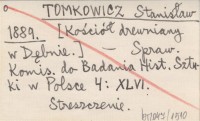 TOMKOWICZ Stanisław
1889. [Kościół drewniany
w Dębnie.] — Spraw.
Komis. do Badania Hist. Sztu-
ki w Polsce 4: XLVI.
Streszczenie.